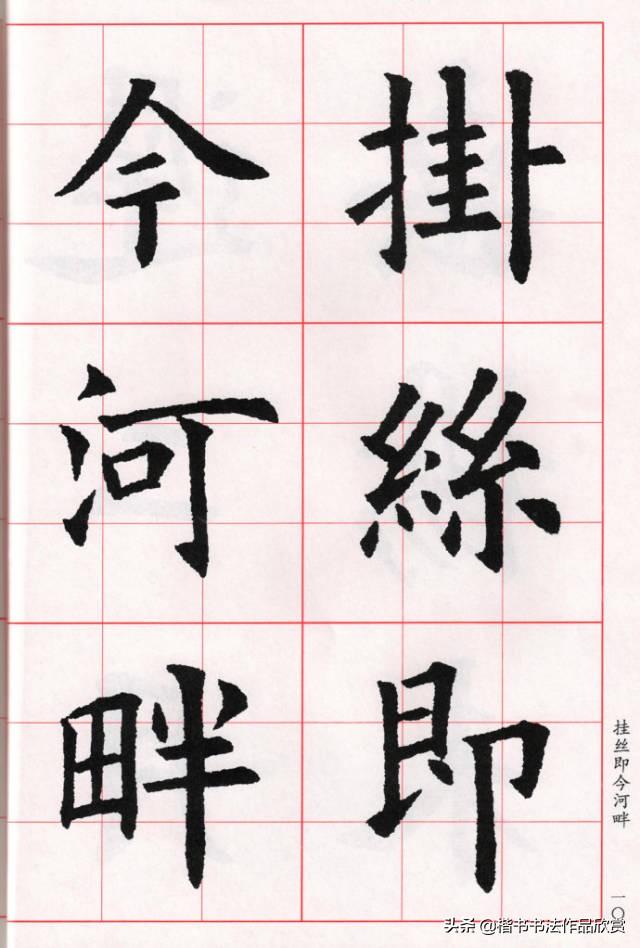 掛絲即
今河畔
挂丝即今河畔
一〇
头条 @楷书书法作品欣赏